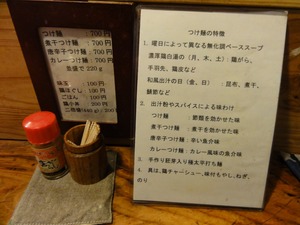 つけ麺 : 700円
煮干つけ麺 : 700円
唐辛子つけ麺 : 700円
カレーつけ麺 : 700円
並盛で220g
100円
鶏ほぐし : 100円
ごはん : 100円
鶏小丼 : 200円
つけ麺の特徴
1. 曜日によって異なる無化調ベーススープ
濃厚鶏白湯の(月、木、土):鶏がら、
手羽先、鶏皮など
和風出汁の日(金、日) : 昆布、煮干、
鯖節など
2. 出汁粉やスパイスによる味わけ
つけ麺 : 節類を効かせた味
煮干つけ麺 : 煮干を効かせた味
唐辛子つけ麺 : 辛い魚介味
カレーつけ麺 : カレー風味の魚介味
3. 手作り胚芽入り極太平打ち麺
4. 具は、鶏チャーシュー、味付もやし、ねぎ、
のり